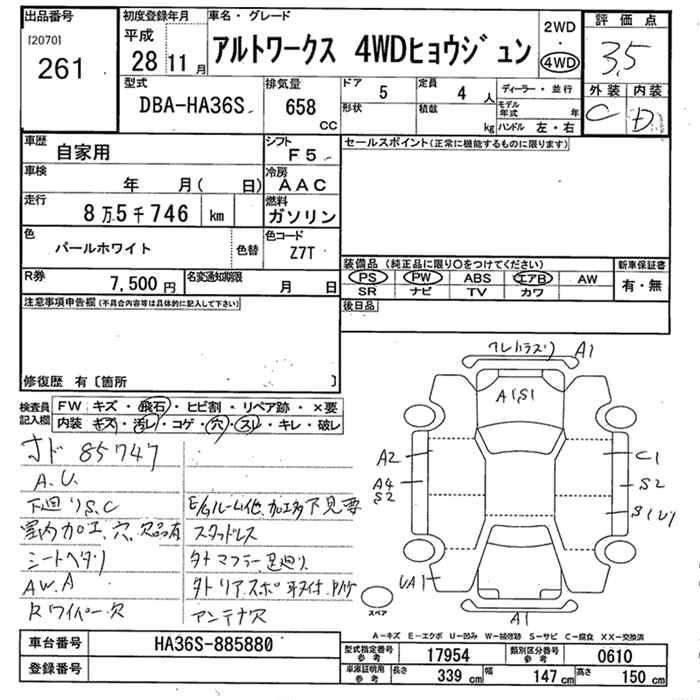 出品番号
[2070]
261
初度登録年月
平成
28 11 月
車名・グレード
アルトワークス 4WDヒョウジュン
2WD
・
4WD
評価点
3.5
外装 内装
C D
型式
DBA-HA36S
排気量
658
CC
ドア
5
定員
4 人
形状
積載
kg
ディーラー・並行
モデル年式 年
ハンドル 左・右
車歴
自家用
シフト
F5
車検
年 月( 日)
冷房
AAC
走行
8万5千746 km
燃料
ガソリン
色
パールホワイト
色替
色コード
Z7T
R券
7,500 円
名変通知期限
月 日
セールスポイント(正常に機能するものに限ります)
装備品 (純正品に限り○をつけてください)
PS PW ABS エアB AW
SR ナビ TV カワ
新車保証書
有・無
後日品
注意事項申告欄(不具合内容等は具体的に記入して下さい)
修復歴 有〔箇所 〕
検査員記入欄
FW キズ・飛石・ヒビ割・リペア跡・×要
内装 キズ・汚レ・コゲ・穴・スレ・キレ・破レ
オド 85747
A.U.
下廻りS,C
室内加工、穴、欠品有
シートヘタリ
AW.A
Rワイパー欠
E/Gルーム他、加工多 下見要
スタッドレス
タトマフラー、足廻り
アンテナ欠
A1
A1S1
A2
A4
S2
UA1
C1
S2
A1
スペア
A-キズ E-エクボ U-凹み W-補修跡 S-サビ C-腐食 XX-交換済
車台番号
HA36S-885880
登録番号
型式指定番号 参考
17954
類別区分番号 参考
0610
車庫証明用 参考
長さ 339 cm 幅 147 cm 高さ 150 cm